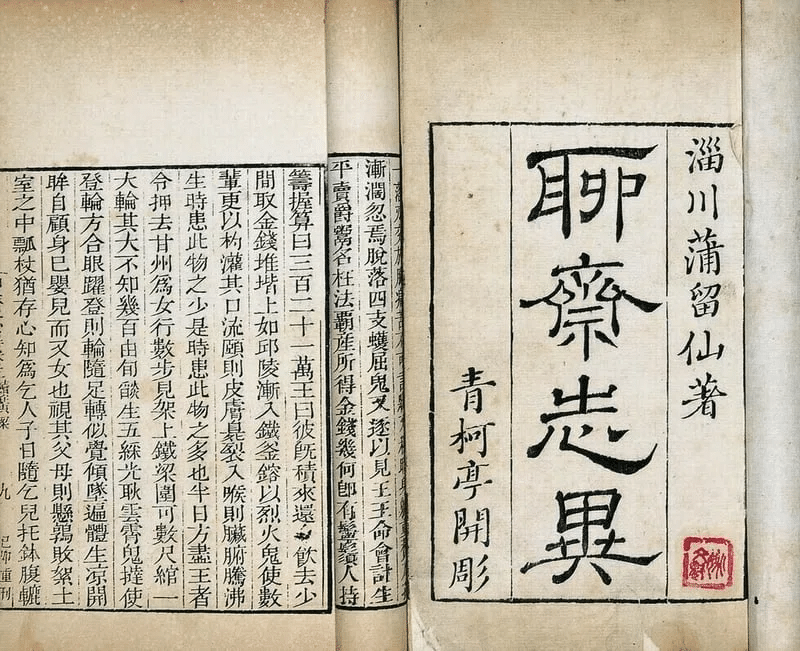 淄川蒲留仙著
聊齋志異
青柯亭開彫
漸澗忽焉脫落四支蠖屈鬼叉遂以見王王命會計生
平賣爵鬻名枉法覇產所得金錢幾何卽有鬡鬚人持
籌握算曰三百二十一萬王曰彼旣積來還飲去少
間取金錢堆堦上如邱陵漸入鐵釜鎔以烈火鬼使數
輩更以杓灌其口流頤則皮膚臭裂入喉則臟腑騰沸
生時患此物之少是時患此物之多也半日方盡王者
令押去甘州爲女行數步見架上鐵梁圍可數尺綰一
大輪其大不知幾百由旬燄生五綵光耿雲霄鬼撻使
登輪方合眼躍登則輪隨足轉似覺傾墜遍體生凉開
眸自顧身已嬰兒而又女也視其父母則懸鶉敗絮土
室之中瓢杖猶存心知爲乞人子日隨乞兒托鉢腹轆
九 己卯重刊